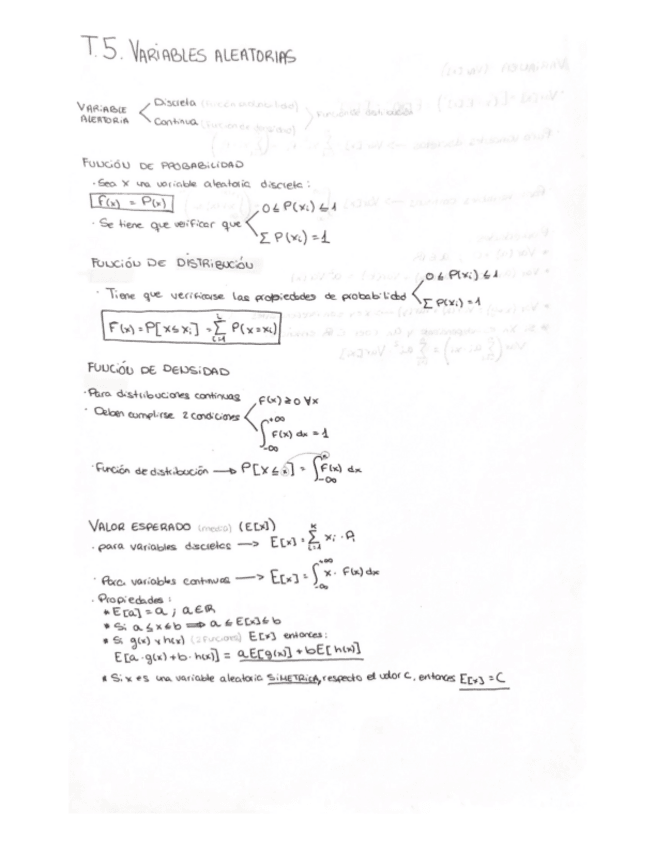 T.5. VARIABLES ALEATORIAS
VARIABLE ALEATORIA < Discreta
Continua
FUNCIÓN DE PROBABILIDAD
· Sea X una variable aleatoria discreta:
f(x) = P(x)
0 ≤ P(xi) ≤ 1
· Se tiene que verificar que <
Σ P(xi) = 1
FUNCIÓN DE DISTRIBUCIÓN
0 ≤ P(xi) ≤ 1
· Tiene que verificarse las propiedades de probabilidad <
Σ P(xi) = 1
F(x) = P[x ≤ xi] = Σ P(x = xi)
FUNCIÓN DE DENSIDAD
· Para distribuciones continuas
f(x) ≥ 0 ∀x
· Deben cumplirse 2 condiciones <
∫_{-∞}^{+∞} f(x) dx = 1
· Función de distribución → P[X ≤ x] = ∫_{-∞}^{x} f(x) dx
VALOR ESPERADO (media) (E[x])
· para variables discretas → E[x] = Σ_{i=1}^{k} xi · Pi
· Para variables continuas → E[x] = ∫_{-∞}^{+∞} x · f(x) dx
· Propiedades:
* E[a] = a ; a ∈ R
* Si a ≤ x ≤ b ⟹ a ≤ E[x] ≤ b
* Si g(x) y h(x) (2 funciones) E[x] entonces:
E[a · g(x) + b · h(x)] = aE[g(x)] + bE[h(x)]
* Si x es una variable aleatoria SIMETRICA, respecto el valor c, entonces E[x] = C